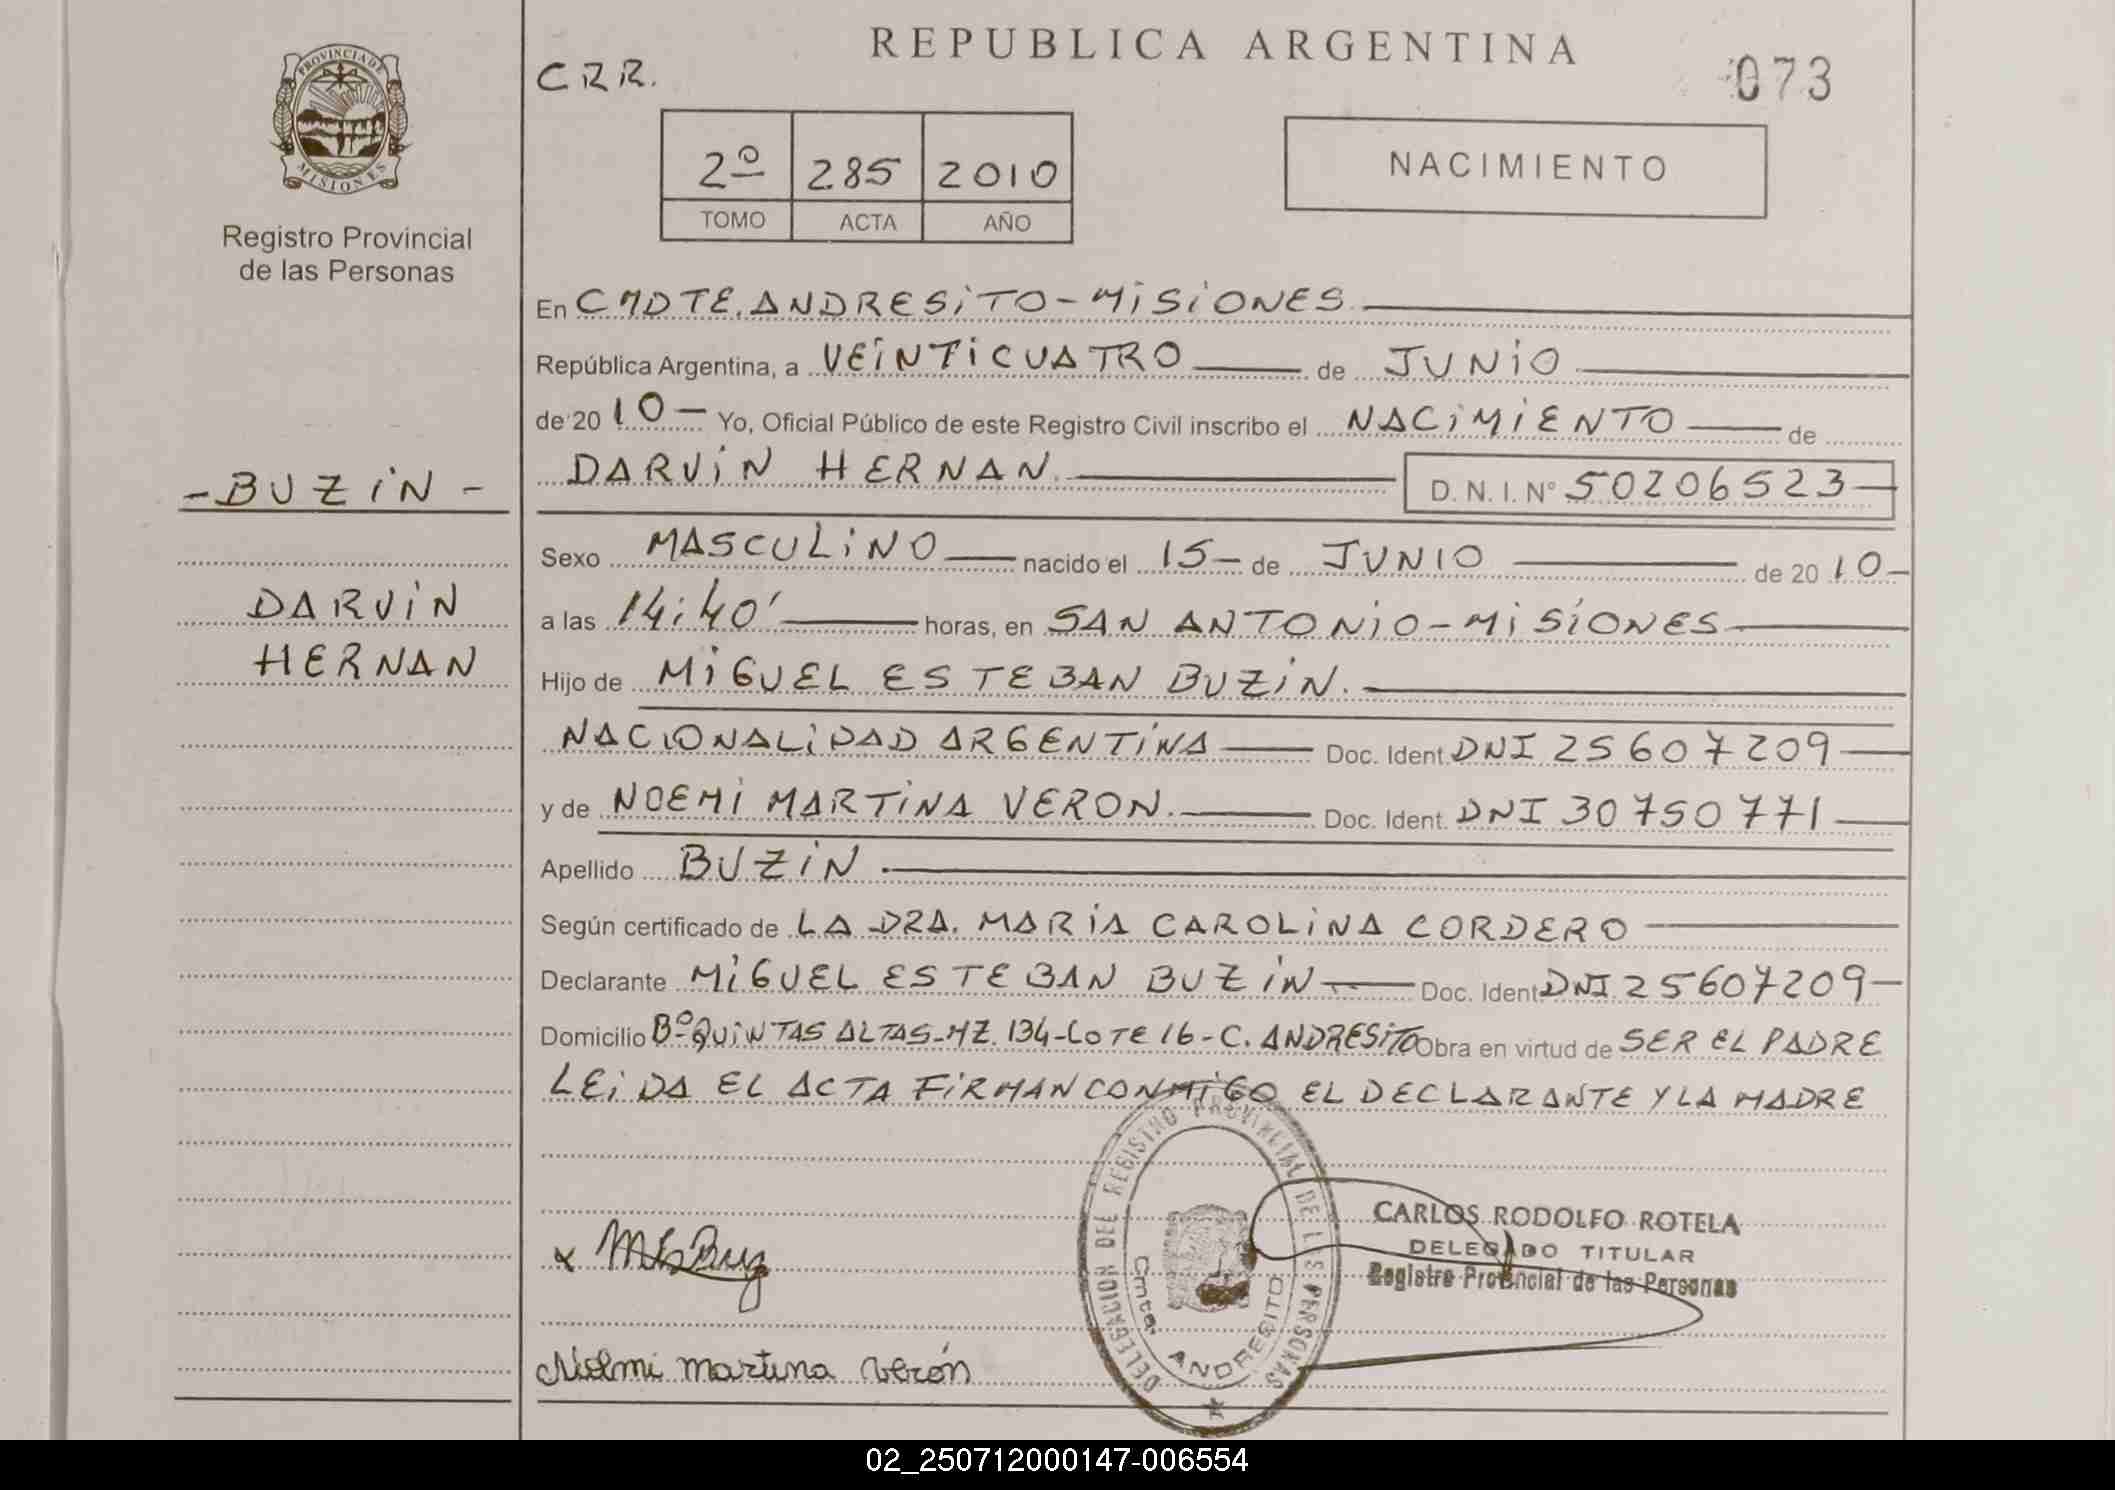 REPUBLICA ARGENTINA
C R R.
073
PROVINCIA DE MISIONES
2º 285 2010
TOMO ACTA AÑO
NACIMIENTO
Registro Provincial
de las Personas
En CMDTE. ANDRESITO - MISIONES.
República Argentina, a VEINTICUATRO de JUNIO
de 20 10 - Yo, Oficial Público de este Registro Civil inscribo el NACIMIENTO de
- BUZIN -
DARVIN HERNAN. D. N. I. Nº 50206523
Sexo MASCULINO nacido el 15 - de JUNIO de 20 10 -
DARVIN
HERNAN
a las 14:40' horas, en SAN ANTONIO - MISIONES
Hijo de MIGUEL ESTEBAN BUZIN.
NACIONALIDAD ARGENTINA Doc. Ident. DNI 25607209
y de NOEMI MARTINA VERON. Doc. Ident. DNI 30750771
Apellido BUZIN
Según certificado de LA DRA. MARIA CAROLINA CORDERO
Declarante MIGUEL ESTEBAN BUZIN Doc. Ident DNI 25607209 -
Domicilio Bº QUINTAS ALTAS - MZ. 134 - LOTE 16 - C. ANDRESITO Obra en virtud de SER EL PADRE
LEIDA EL ACTA FIRMAN CONMIGO EL DECLARANTE Y LA MADRE
DELEGACION DEL REGISTRO PROVINCIAL DE LAS PERSONAS
Cmte. ANDRESITO
CARLOS RODOLFO ROTELA
DELEGADO TITULAR
Registro Provincial de las Personas
Noemi martina Verón
02_250712000147-006554